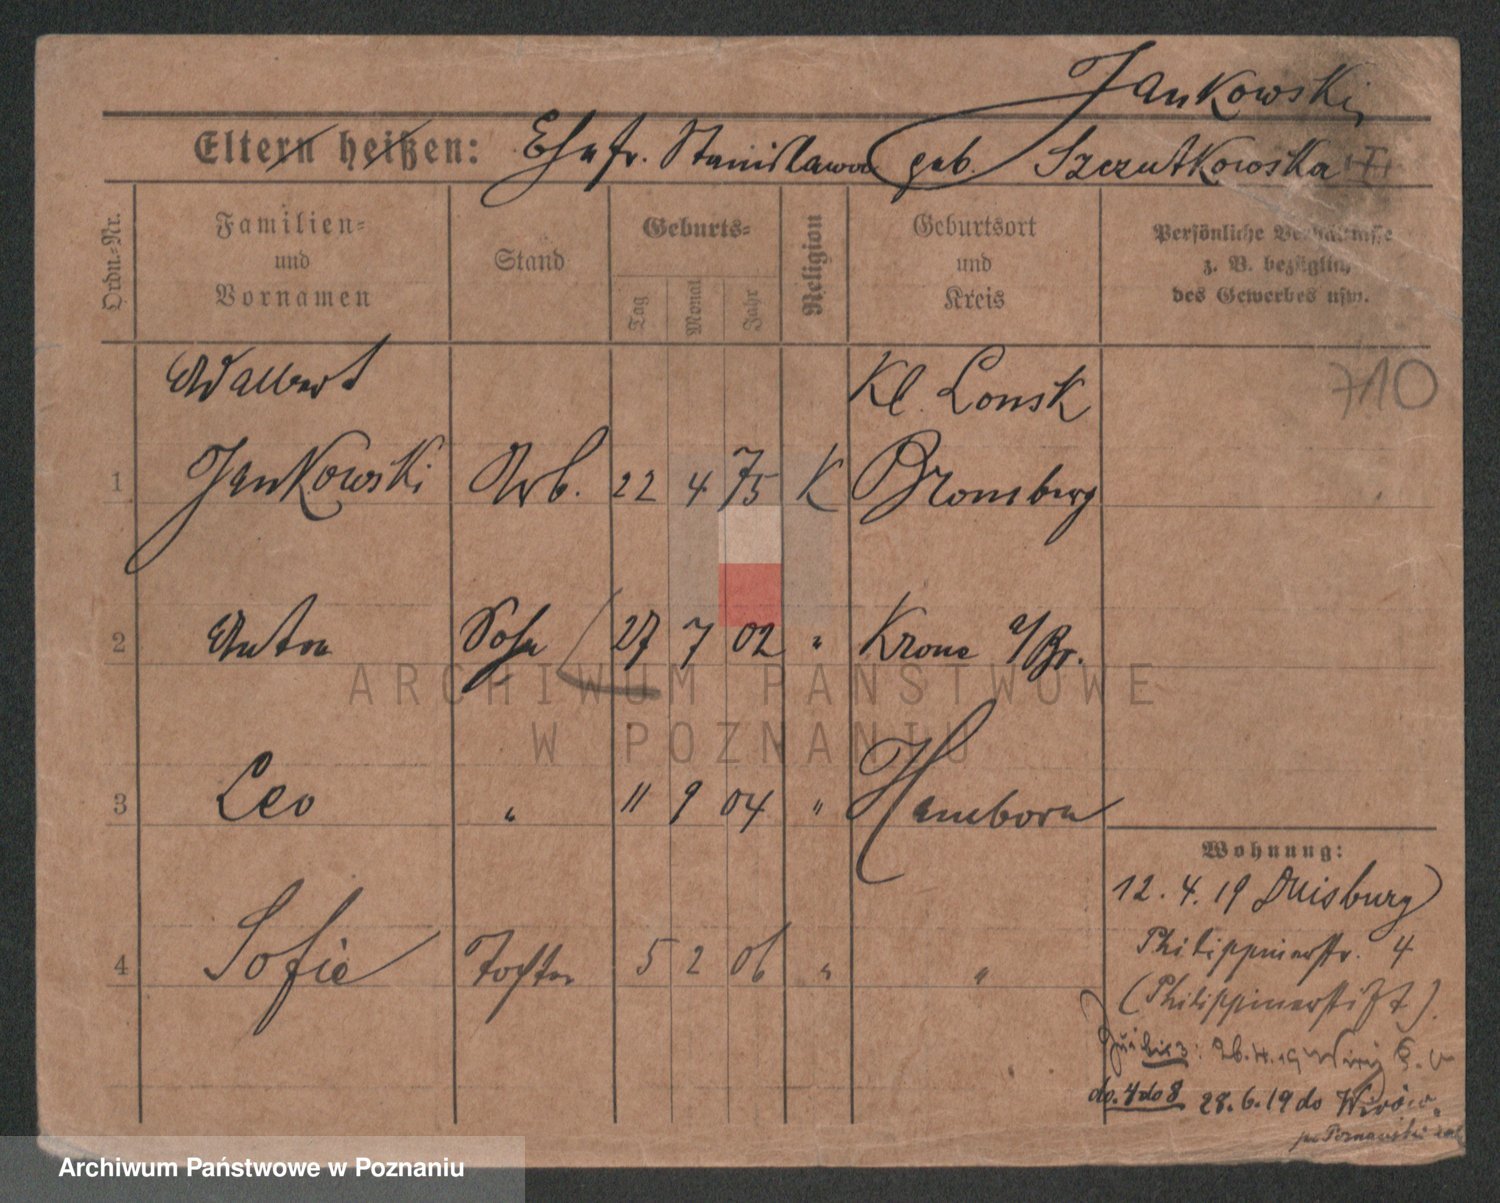 Jankowski
Eltern heißen: Ehefr. Stanislawa geb. Szczutkowska
Ordn.-Nr.
Familien-
und
Vornamen
Stand
Geburts-
Tag
Monat
Jahr
Religion
Geburtsort
und
Kreis
Persönliche Verhältnisse
z. B. bezüglich
des Gewerbes usw.
710
Adalbert Kl. Lonsk
1 Jankowski Arb. 22 4 75 K Bromberg
2 Anton Sohn 27 7 02 " Krone a/Br.
3 Leo " 11 9 04 " Hamborn
4 Sofie Tochter 5 2 06 " "
Wohnung:
12. 4. 19 Duisburg
Philippinenstr. 4
(Philippinenstift).
26.4.19
do. 4 do 8 28.6.19 do Wirów.
ARCHIWUM PAŃSTWOWE
W POZNANIU
Archiwum Państwowe w Poznaniu